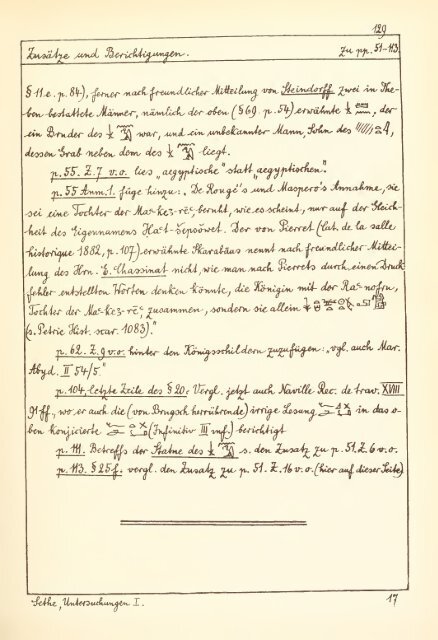 129
Zusätze und Berichtigungen. Zu pp. 51-113
§ 11.e. p. 84), ferner nach freundlicher Mitteilung von Steindorff zwei in The-
ben bestattete Männer, nämlich der oben (§ 69. p. 54) erwähnte , der
ein Bruder des war, und ein unbekannter Mann, Sohn des
dessen Grab neben dem des liegt.
p. 55. Z. 7 v. o. lies „aegyptische" statt „aegyptischen".
p. 55 Anm. 1. füge hinzu: „De Rougé's und Maspero's Annahme, sie
sei eine Tochter der beruht, wie es scheint, nur auf der Gleich-
heit des Eigennamens Der von Pierret (Cat. de la salle
historique 1882, p. 107) erwähnte Skarabäus nennt nach freundlicher Mittei-
lung des Hrn. E. Chassinat nicht, wie man nach Pierrets durch einen Druck
fehler entstellten Worten denken könnte, die Königin mit der
Tochter der zusammen, sondern sie allein
(s. Petrie Hist. scar. 1083)."
p. 62. Z. 9 v. o. hinter den Königsschildern zuzufügen: „vgl. auch Mar.
Abyd. II 54/5."
p. 104, letzte Zeile des § 20: Vergl. jetzt auch Naville Rec. de trav. XVIII
91 ff., wo er auch die (von Brugsch herrührende) irrige Lesung in das o-
ben konjicierte (Infinitiv III inf.) berichtigt
p. 111. Betreffs der Statue des s. den Zusatz zu p. 51. Z. 6 v. o.
p. 113. § 25 f. vergl. den Zusatz zu p. 51. Z. 16 v. o. (hier auf dieser Seite)
Sethe, Untersuchungen I. 17